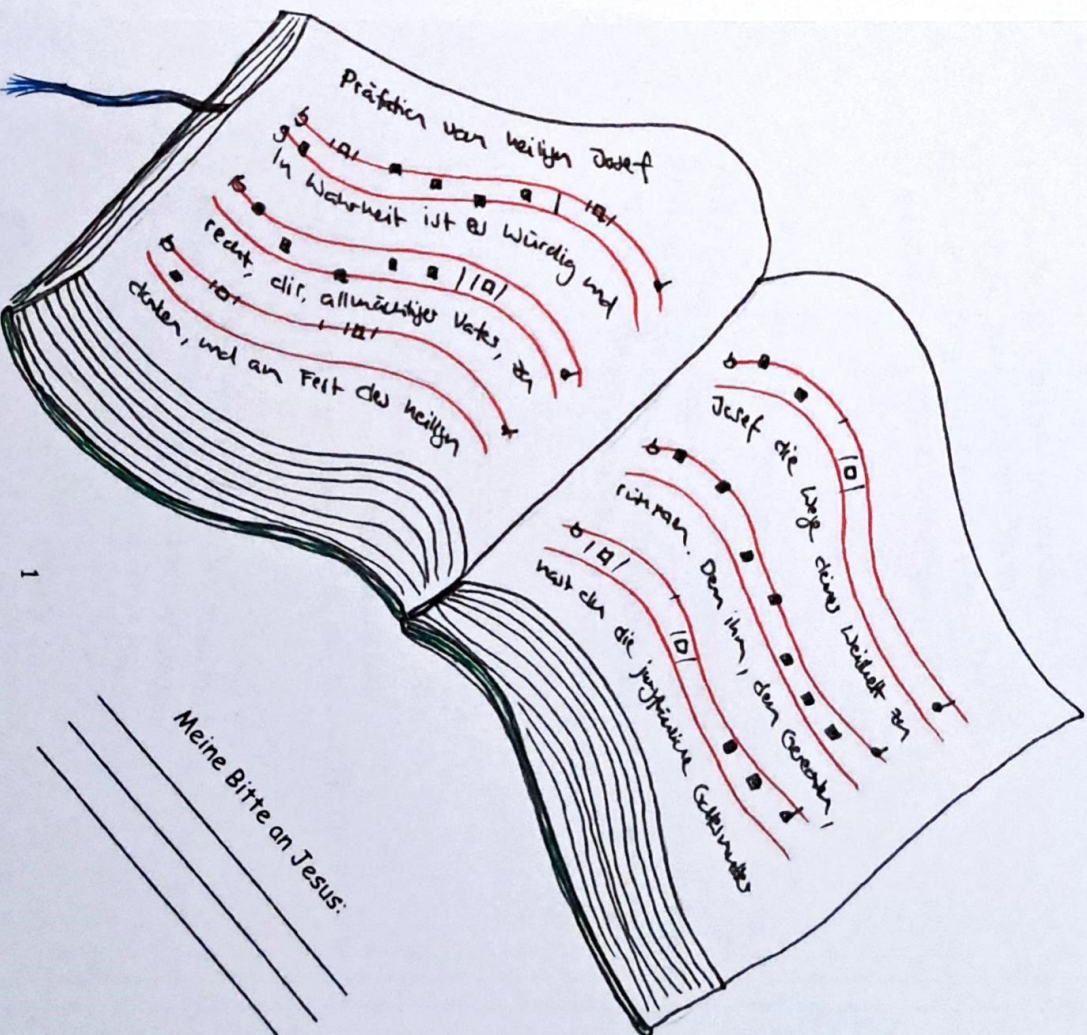 Präfation vom heiligen Josef
In Wahrheit ist es würdig und
recht, dir, allmächtiger Vater, zu
danken, und am Fest des heiligen
Josef die Wege deiner Weisheit zu
rühmen. Denn ihm, dem Gerechten,
hast du die jungfräuliche Gottesmutter
1
Meine Bitte an Jesus: